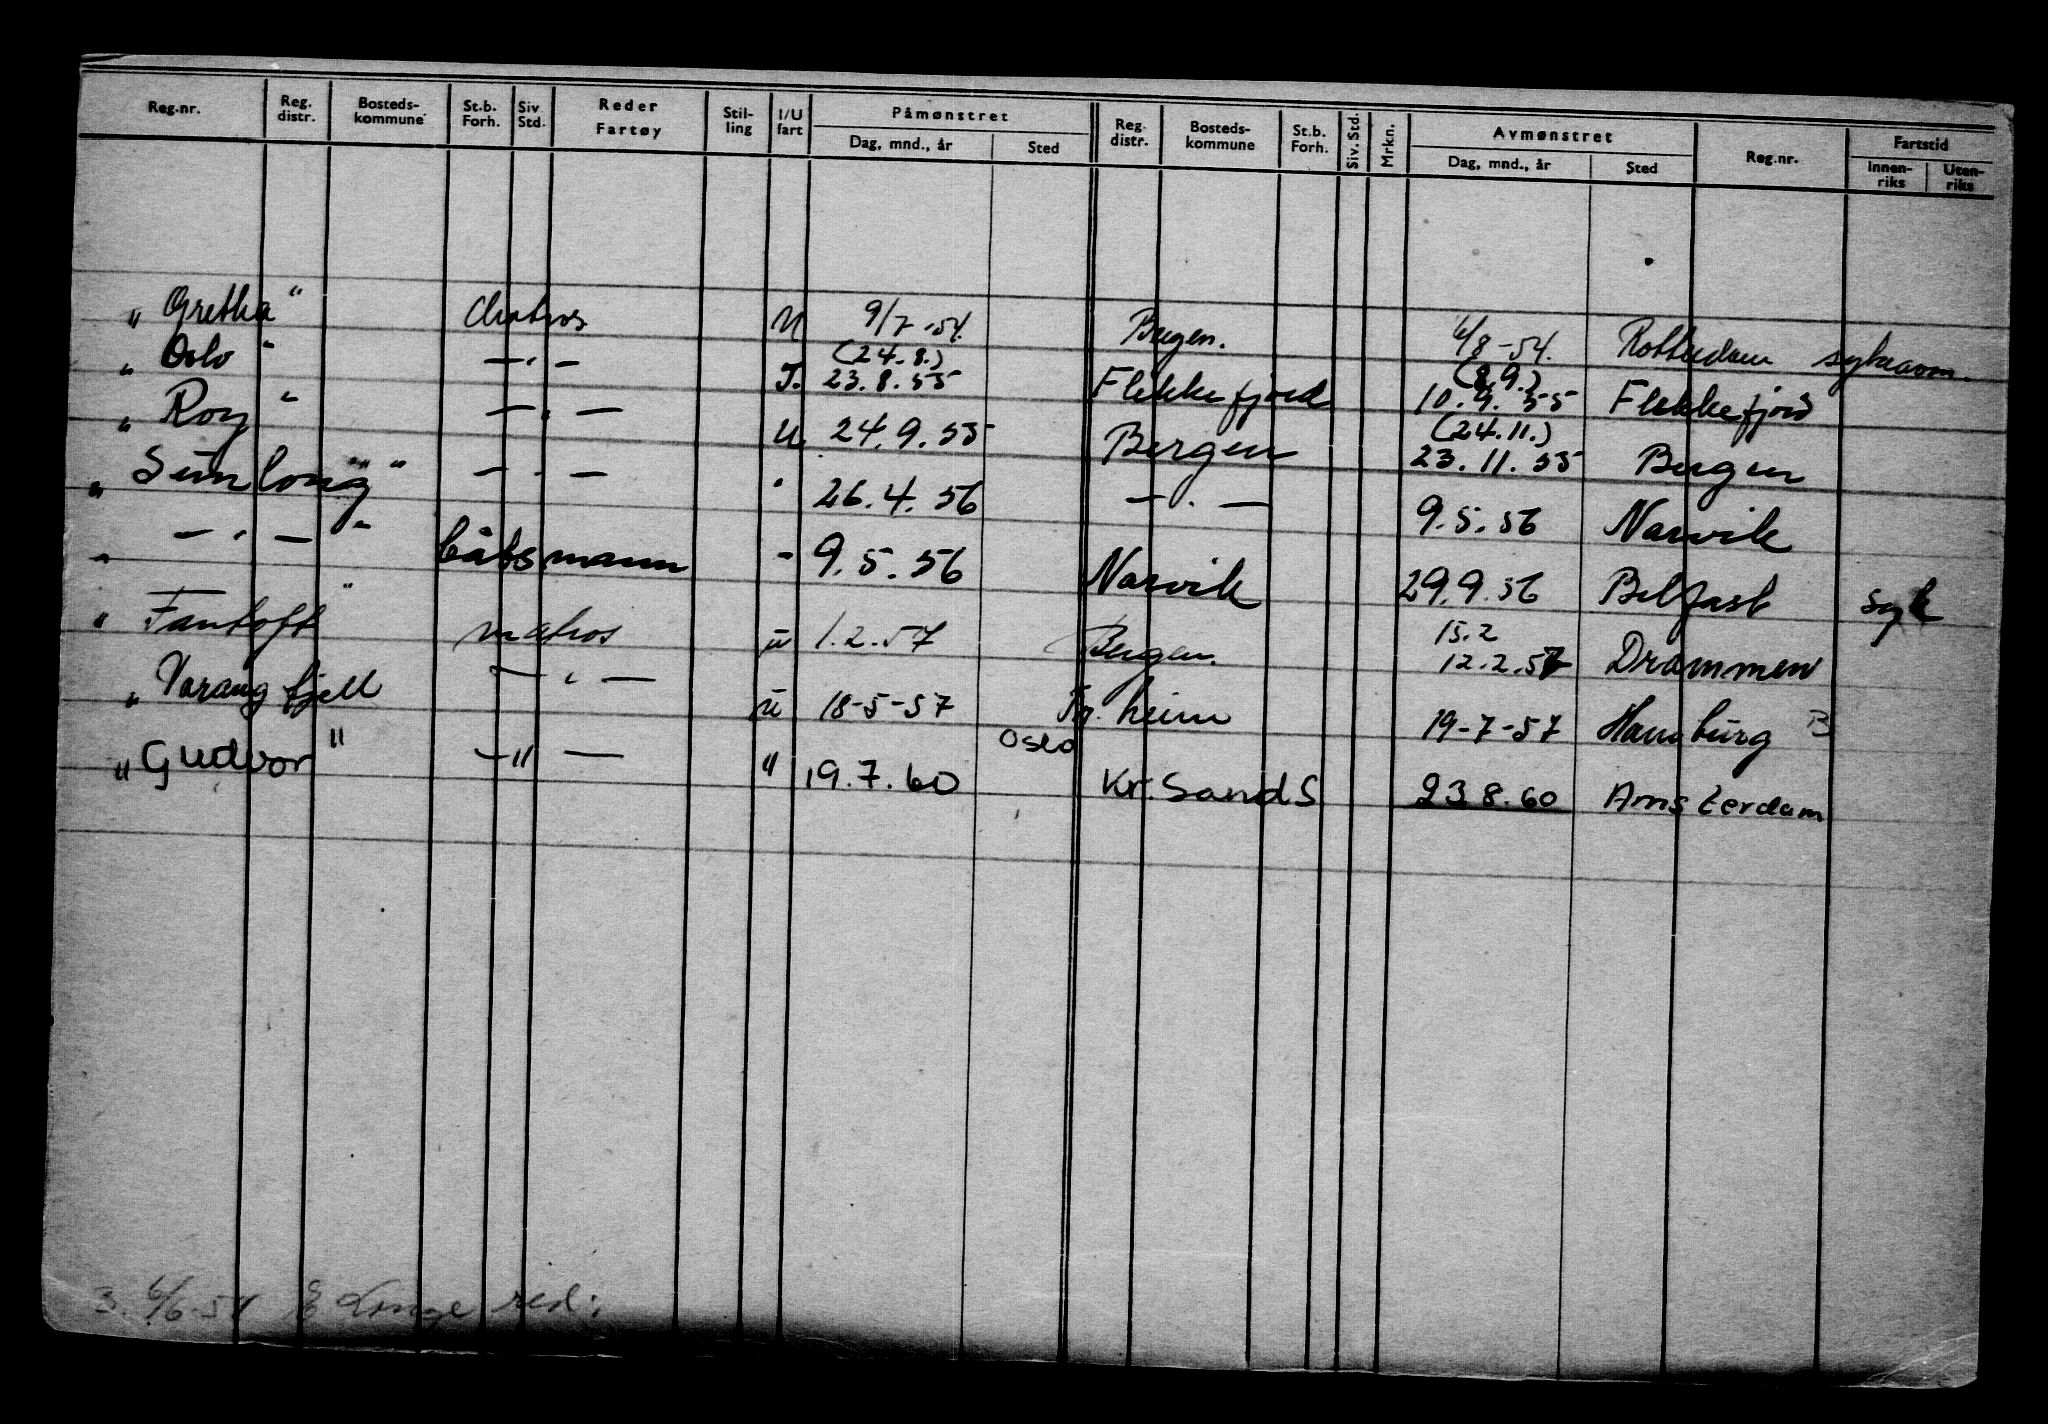 Reg.nr. Reg. distr. Bosteds- kommune St.b. Forh. Siv. Std. Reder Fartøy Stil- ling I/U fart Påmønstret Dag, mnd., år Sted Reg. distr. Bosteds- kommune St.b. Forh. Siv. Std. Mrkn. Avmønstret Dag, mnd., år Sted Reg.nr. Fartstid Innen- riks Uten- riks
„ Gretha “ Matros U 9/7 -54. Bergen. 6/8 -54. Rotterdam sykeavm.
„ Oslo “ — „ — I. (24.8.) 23.8.55 Flekkefjord (8.9.) 10.9.55 Flekkefjord
„ Roy “ — „ — U. 24.9.55 Bergen (24.11.) 23.11.55 Bergen
„ Sunlong “ — „ — " 26.4.56 — " — 9.5.56 Narvik
„ — „ — “ båtsmann " 9.5.56 Narvik 29.9.56 Belfast syk
„ Fantoft “ matros u 1.2.57 Bergen. 15.2 12.2.57 Drammen
„ Varangfjell — „ — u 18-5-57 Tr.heim 19-7-57 Hamburg B
„ Gudvor “ — " — " 19.7.60 Oslo Kr. Sand S 23.8.60 Amsterdam
3. 6/6-54